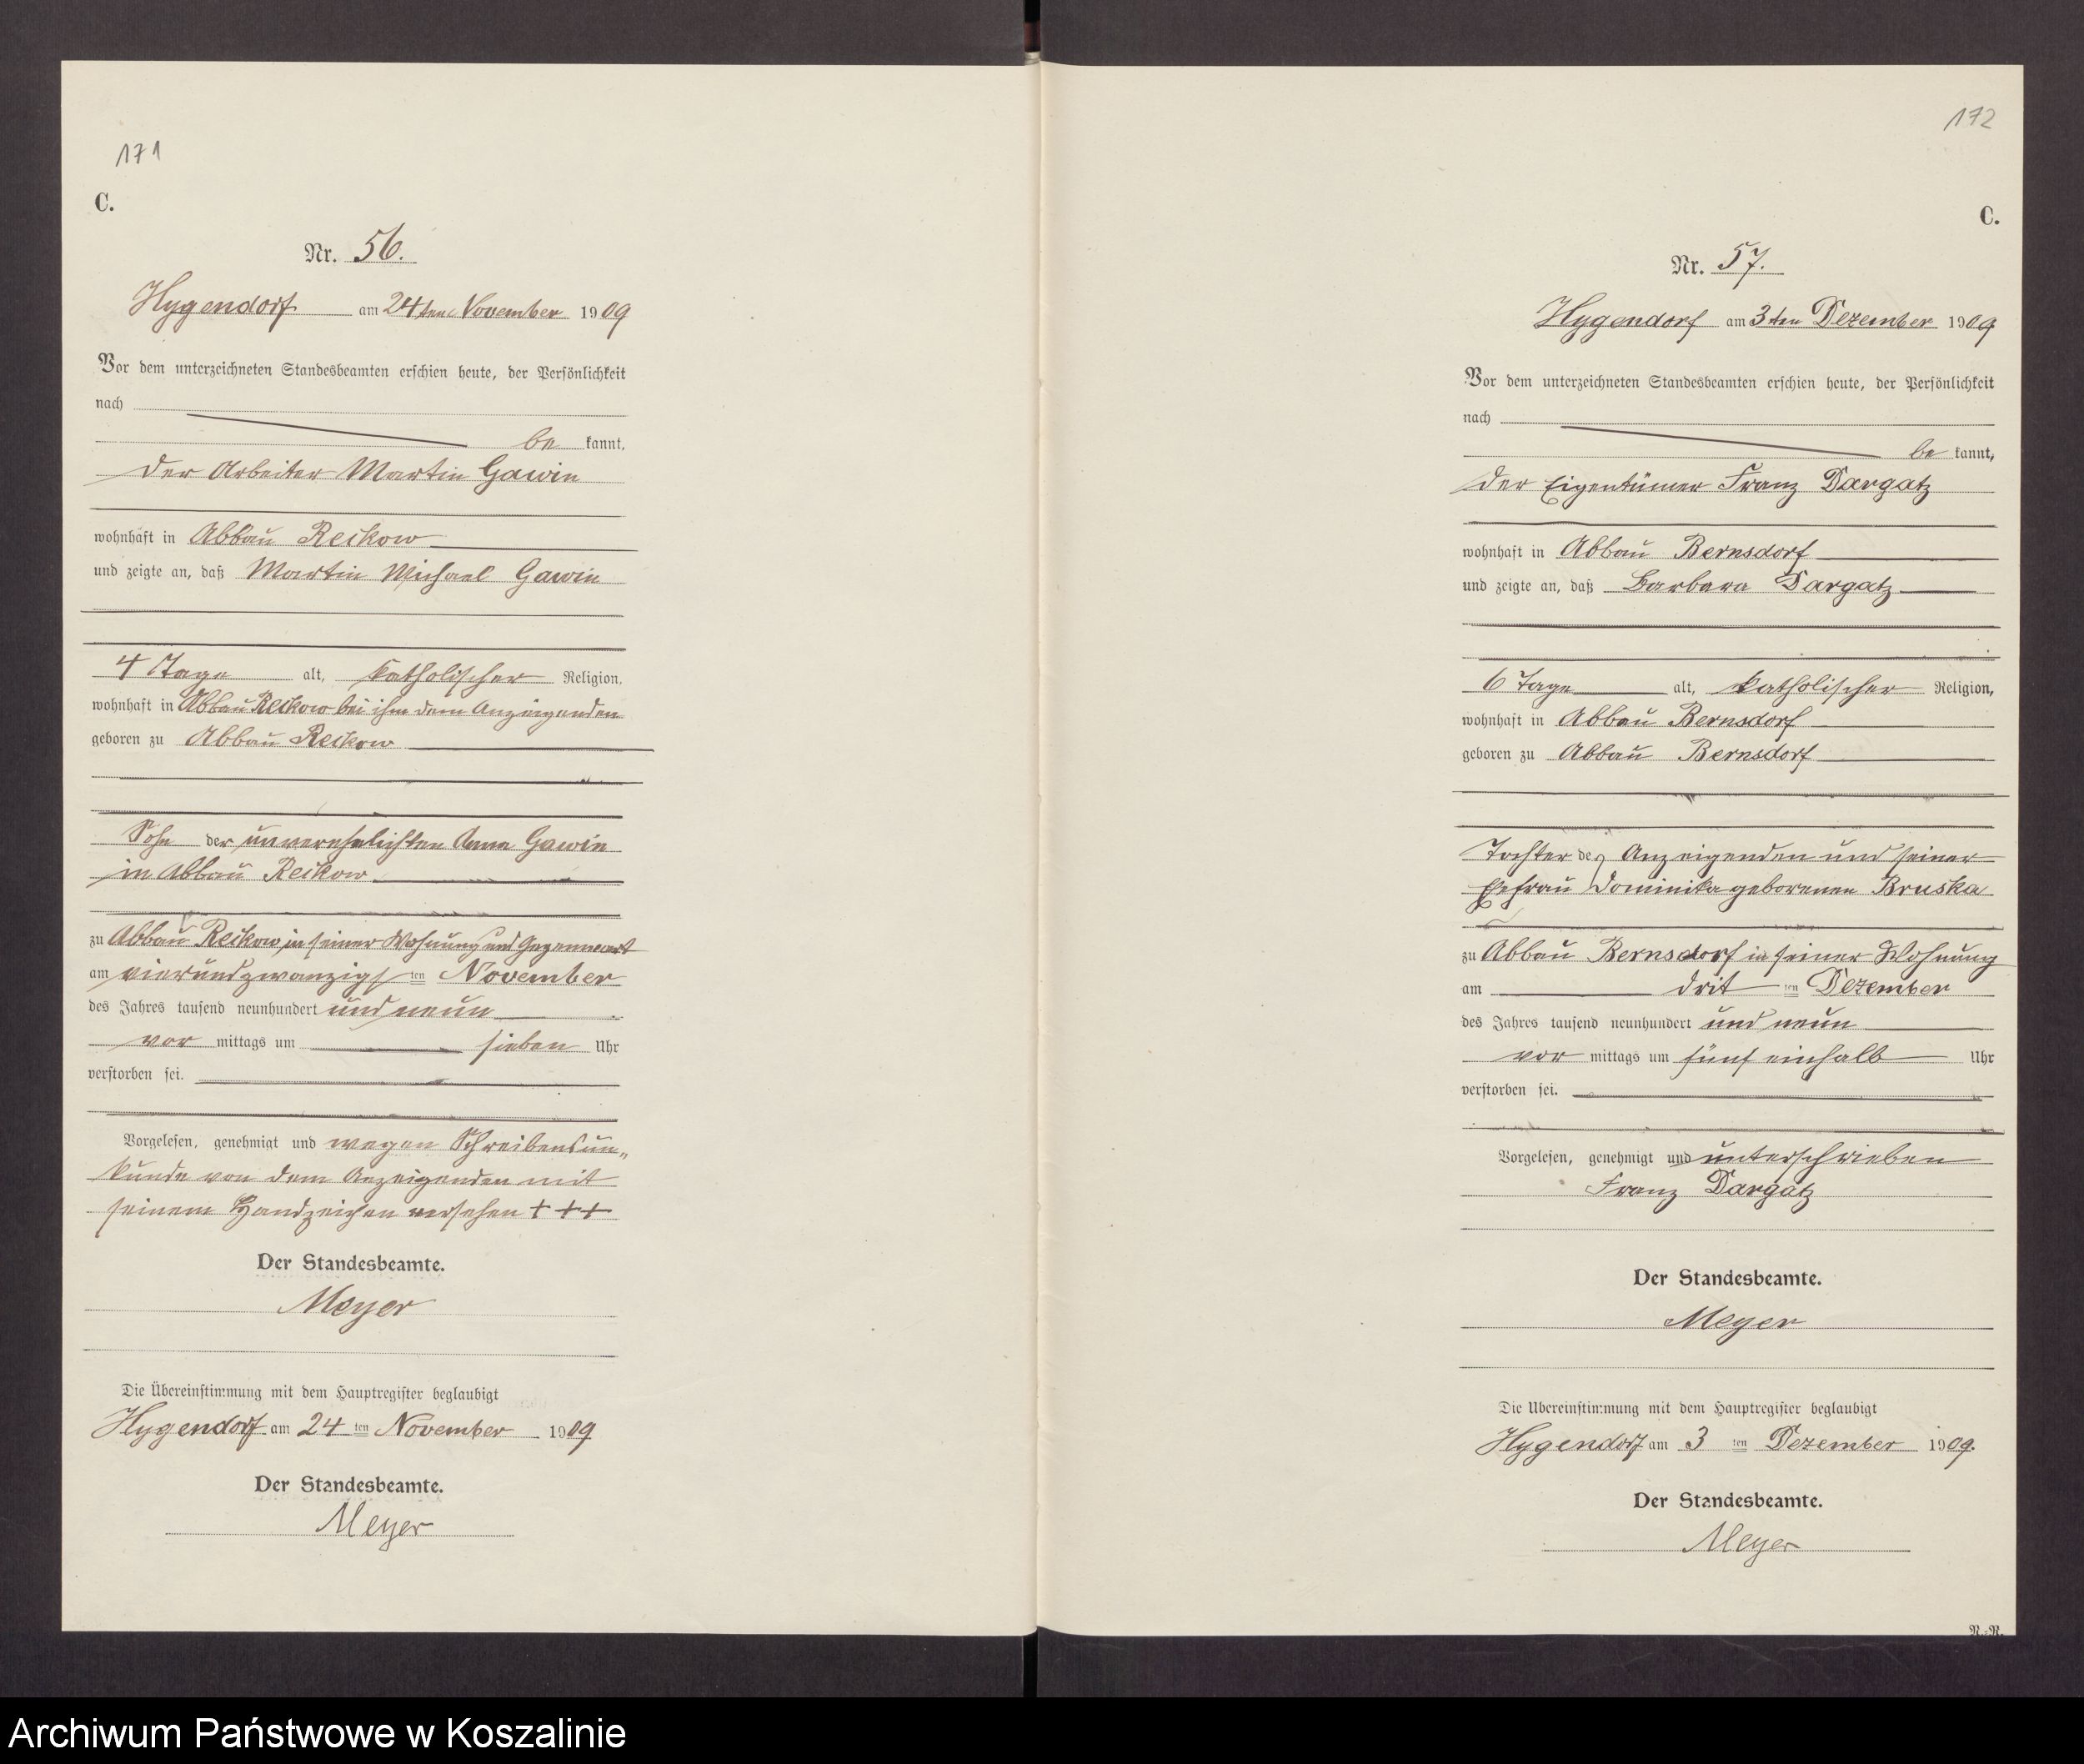 171
C.
Nr. 56.
Hygendorf am 24ten November 1909
Vor dem unterzeichneten Standesbeamten erschien heute, der Persönlichkeit
nach
be kannt,
der Arbeiter Martin Gawin
wohnhaft in Abbau Reckow
und zeigte an, daß Martin Michael Gawin
4 Tage alt, katholischer Religion,
wohnhaft in Abbau Reckow bei ihm dem Anzeigenden
geboren zu Abbau Reckow
Sohn der unverehelichten Anna Gawin
in Abbau Reckow
zu Abbau Reckow, in seiner Wohnung und Gegenwart
am vierundzwanzigs ten November
des Jahres tausend neunhundert und neun
vor mittags um sieben Uhr
verstorben sei.
Vorgelesen, genehmigt und wegen Schreibensun„
kunde von dem Anzeigenden mit
seinem Handzeichen versehen +++
Der Standesbeamte.
Meyer
Die Übereinstimmung mit dem Hauptregister beglaubigt
Hygendorf am 24 ten November 1909
Der Standesbeamte.
Meyer
172
C.
Nr. 57.
Hygendorf am 3ten Dezember 1909
Vor dem unterzeichneten Standesbeamten erschien heute, der Persönlichkeit
nach
be kannt,
der Eigentümer Franz Dargatz
wohnhaft in Abbau Bernsdorf
und zeigte an, daß Barbara Dargatz
6 Tage alt, katholischer Religion,
wohnhaft in Abbau Bernsdorf
geboren zu Abbau Bernsdorf
Tochter des Anzeigenden und seiner
Ehefrau Dominika geborenen Bruska
zu Abbau Bernsdorf in seiner Wohnung
am drit ten Dezember
des Jahres tausend neunhundert und neun
vor mittags um fünf einhalb Uhr
verstorben sei.
Vorgelesen, genehmigt und unterschrieben
Franz Dargatz
Der Standesbeamte.
Meyer
Die Übereinstimmung mit dem Hauptregister beglaubigt
Hygendorf am 3 ten Dezember 1909.
Der Standesbeamte.
Meyer
N.-N.
Archiwum Państwowe w Koszalinie